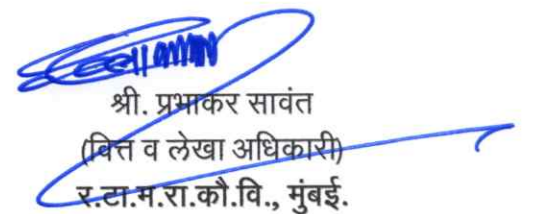 श्री. प्रभाकर सावंत
(वित्त व लेखा अधिकारी)
र.टा.म.रा.कौ.वि., मुंबई.